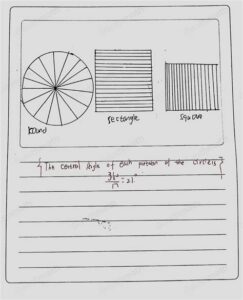 round
rectangle
square
{The central angle of each portion of the circle is}
360/17 = 21°